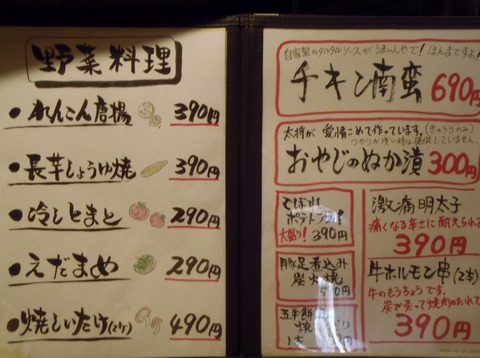 野菜料理
●れんこん唐揚 390円
●長芋しょうゆ焼 390円
●冷しとまと 290円
●えだまめ 290円
●焼しいたけ(2ケ) 490円
自家製のタルタルソースがうまいんやで!ほんまですよ!
チキン南蛮 690円
大将が愛情こめて作っています。(きゅうりのみ)
つかりが浅い時は提供していません。
おやじのぬか漬 300円
ポテトフライ
大盛り! 390円
豚足煮込み
炭火焼
激痛明太子
痛くなる辛さに耐えられる
390円
牛ホルモン串(2本)
牛のもうちょうです。
炭で炙って焼肉のたれで
390円